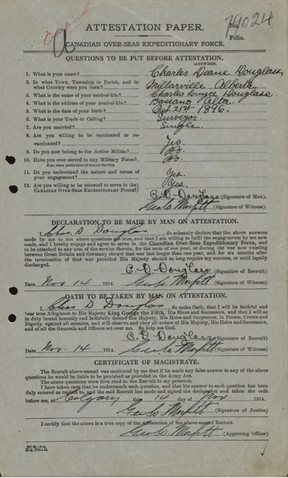 ATTESTATION PAPER.
Folio.
CANADIAN OVER-SEAS EXPEDITIONARY FORCE.
QUESTIONS TO BE PUT BEFORE ATTESTATION.
(ANSWERS)
1. What is your name? Charles Duane Douglass
2. In what Town, Township or Parish, and in what Country were you born? Millarville Alberta
3. What is the name of your next-of-kin? Charles Douglass
4. What is the address of your next-of-kin? Bassano Alta.
5. What is the date of your birth? Oct 21st 1896.
6. What is your Trade or Calling? Surveyor
7. Are you married? Single
8. Are you willing to be vaccinated or re-vaccinated? Yes
9. Do you now belong to the Active Militia? No
10. Have you ever served in any Military Force? No.
If so, state particulars of former Service.
11. Do you understand the nature and terms of your engagement? Yes
12. Are you willing to be attested to serve in the CANADIAN OVER-SEAS EXPEDITIONARY FORCE? Yes.
C. D. Douglass (Signature of Man).
(Signature of Witness)
DECLARATION TO BE MADE BY MAN ON ATTESTATION.
I, Chas D Douglass, do solemnly declare that the above answers
made by me to the above questions are true, and that I am willing to fulfil the engagements by me now
made, and I hereby engage and agree to serve in the Canadian Over-Seas Expeditionary Force, and
to be attached to any arm of the service therein, for the term of one year, or during the war now existing
between Great Britain and Germany should that war last longer than one year, and for six months after
the termination of that war provided His Majesty should so long require my services, or until legally
discharged.
C. D. Douglass (Signature of Recruit)
Date Nov. 14 1914. (Signature of Witness)
OATH TO BE TAKEN BY MAN ON ATTESTATION.
I, Chas D Douglass, do make Oath, that I will be faithful and
bear true Allegiance to His Majesty King George the Fifth, His Heirs and Successors, and that I will as
in duty bound honestly and faithfully defend His Majesty, His Heirs and Successors, in Person, Crown and
Dignity, against all enemies, and will observe and obey all orders of His Majesty, His Heirs and Successors,
and of all the Generals and Officers set over me. So help me God.
C. D. Douglass (Signature of Recruit)
Date Nov. 14 1914. (Signature of Witness)
CERTIFICATE OF MAGISTRATE.
The Recruit above-named was cautioned by me that if he made any false answer to any of the above
questions he would be liable to be punished as provided in the Army Act.
The above questions were then read to the Recruit in my presence.
I have taken care that he understands each question, and that his answer to each question has been
duly entered as replied to, and the said Recruit has made and signed the declaration and taken the oath
before me, at Calgary this 14 day of Nov 1914.
(Signature of Justice)
I certify that the above is a true copy of the Attestation of the above-named Recruit.
(Approving Officer)